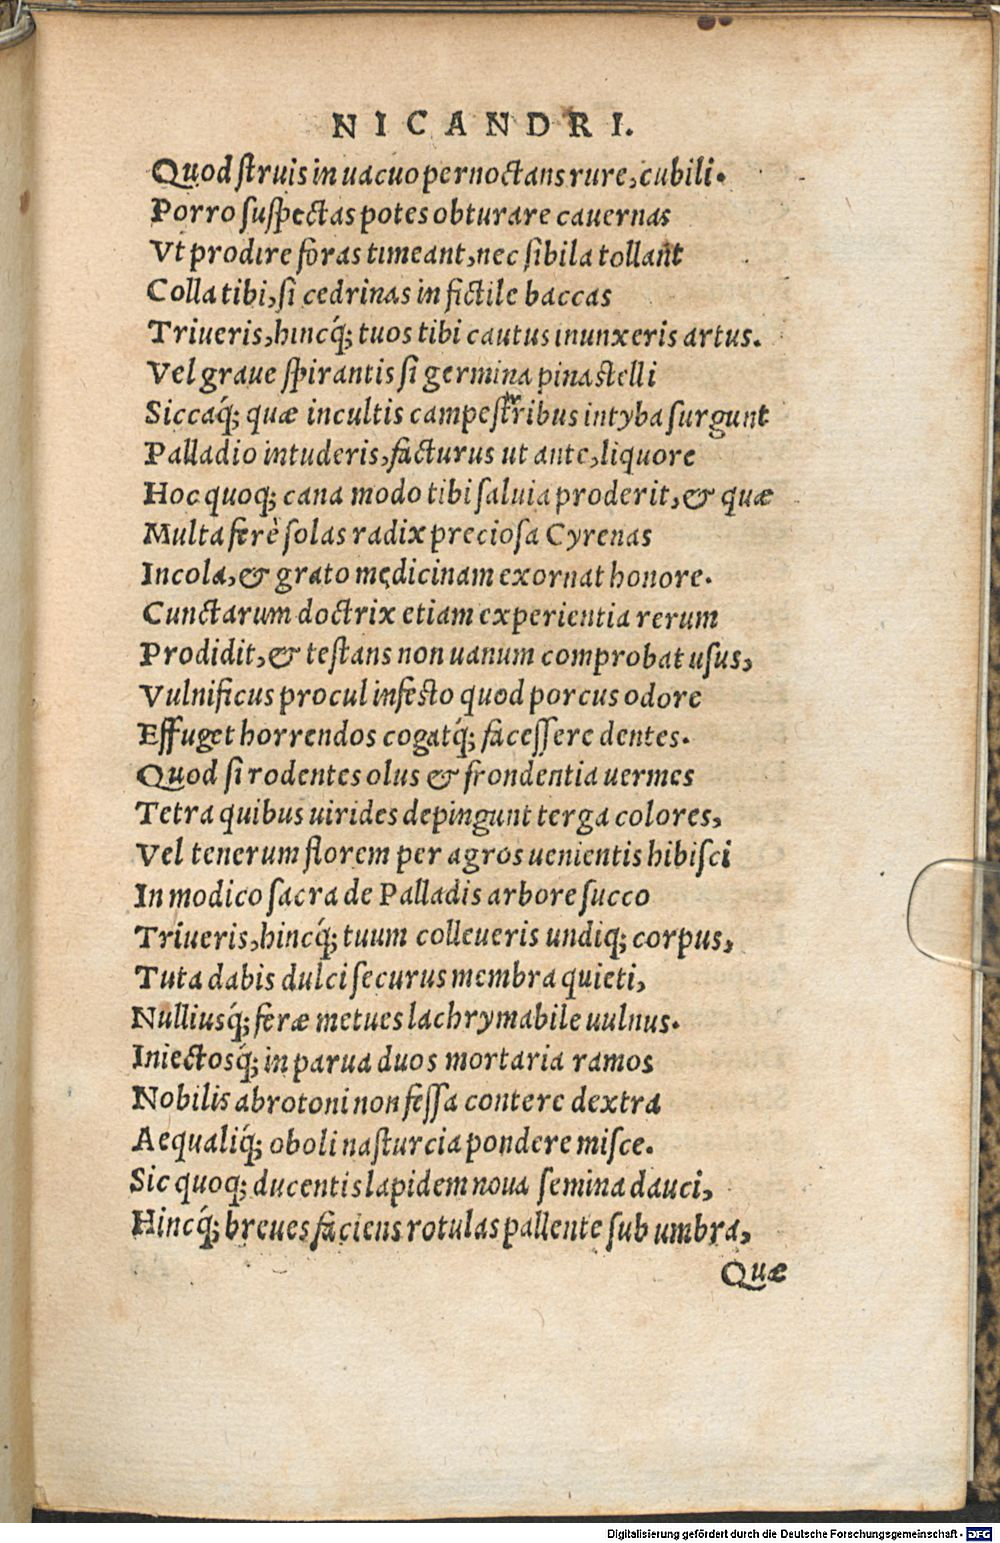 NICANDRI.
Quod struis in uacuo pernoctans rure, cubili.
Porro suspectas potes obturare cauernas
Vt prodire foras timeant, nec sibila tollant
Colla tibi, si cedrinas in fictile baccas
Triueris, hincq́; tuos tibi cautus inunxeris artus.
Vel graue spirantis si germina pinastelli
Siccaq́; quæ incultis campestribus intyba surgunt
Palladio intuderis, facturus ut ante, liquore
Hoc quoq; cana modo tibi saluia proderit, & quæ
Multa ferè solas radix preciosa Cyrenas
Incola, & grato medicinam exornat honore.
Cunctarum doctrix etiam experientia rerum
Prodidit, & testans non uanum comprobat usus,
Vulnificus procul infesto quod porcus odore
Effuget horrendos cogatq́; facessere dentes.
Quod si rodentes olus & frondentia uermes
Tetra quibus uirides depingunt terga colores,
Vel tenerum florem per agros uenientis hibisci
In modico sacra de Palladis arbore succo
Triueris, hincq́; tuum colleueris undiq; corpus,
Tuta dabis dulci securus membra quieti,
Nulliusq́; feræ metues lachrymabile uulnus.
Iniectosq́; in parua duos mortaria ramos
Nobilis abrotoni non fessa contere dextra
Aequaliq́; oboli nasturcia pondere misce.
Sic quoq; ducentis lapidem noua semina dauci,
Hincq́; breues faciens rotulas pallente sub umbra,
Quæ
Digitalisierung gefördert durch die Deutsche Forschungsgemeinschaft - DFG